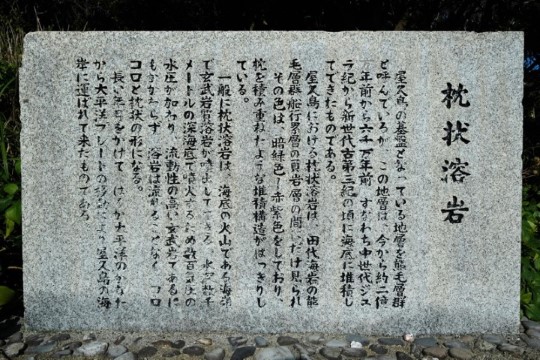 枕状溶岩
屋久島の基盤となっている地層を熊毛層群
と呼んでいるが、この地層は、今から約二億
万年前から六千万年前、すなわち中世代ジュ
ラ紀から新世代古第三紀の頃に海底に堆積し
てできたものである。
屋久島における枕状溶岩は、田代海岸の熊
毛層群舩行累層の頁岩層の間にだけ見られ
その色は、暗緑色～赤紫色をしており、
枕を積み重ねたような堆積構造がはっきりし
ている。
一般に枕状溶岩は、海底の火山である海嶺
で玄武岩質溶岩が噴出してできる。水深数千
メートルの深海底で噴火するため数百気圧の
水圧が加わり、流動性の高い玄武岩であるに
もかかわらず、溶岩は流れることなく、コロ
コロと枕状の形になる。
長い年月をかけて、はるか太平洋のかなた
から太平洋プレートの移動により屋久島の海
岸に運ばれて来たものである